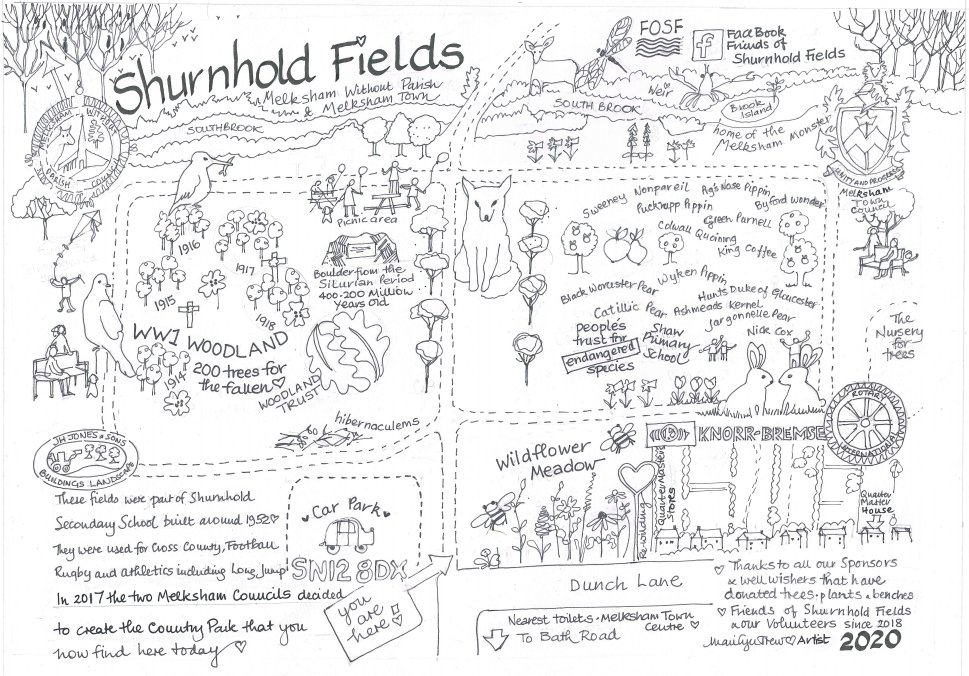 Shurnhold Fields
Melksham Without Parish
& Melksham Town
FOSF
f
FaceBook
Friends of
Shurnhold Fields
SOUTHBROOK
SOUTH BROOK
Weir
Brook
Island
home of the
Melksham Monster
MELKSHAM WITHOUT
PARISH COUNCIL
UNITY AND PROGRESS
Melksham
Town
Council
Picnic area
Boulder from the
Silurian Period
400-200 Million
Years old
1916
1917
1915
1918
1914
WW1 WOODLAND
200 trees for
the fallen
WOODLAND
TRUST
hibernaculems
Sweeney
Nonpareil
Pig's Nose Pippin
Puckrupp Pippin
Byford Wonder
Green Parnell
Colwall Quoining
King Coffee
Wyken Pippin
Black Worcester Pear
Hunts Duke of Gloucester
Catillic Pear
Ashmeads Kernel
Jargonnelle Pear
Nick Cox
peoples
trust for
endangered
species
Shaw
Primary
School
The
Nursery
for
trees
ROTARY
INTERNATIONAL
JH JONES & SONS
BUILDINGS · LANDSCAPE
Wildflower
Meadow
KNORR-BREMSE
Re:building
QuarterMasters
Stores
Quarter
Master
House
These fields were part of Shurnhold
Seconday School built around 1952
They were used for Cross County, Football
Rugby and athletics including Long Jump
In 2017 the two Melksham Councils decided
to create the Country Park that you
now find here today
Car Park
SN12 8DX
you
are
here
Dunch Lane
Nearest toilets - Melksham Town
Centre
To Bath Road
Thanks to all our Sponsors
& well wishers that have
donated trees · plants & benches
Friends of Shurnhold Fields
& our Volunteers since 2018
Artist 2020